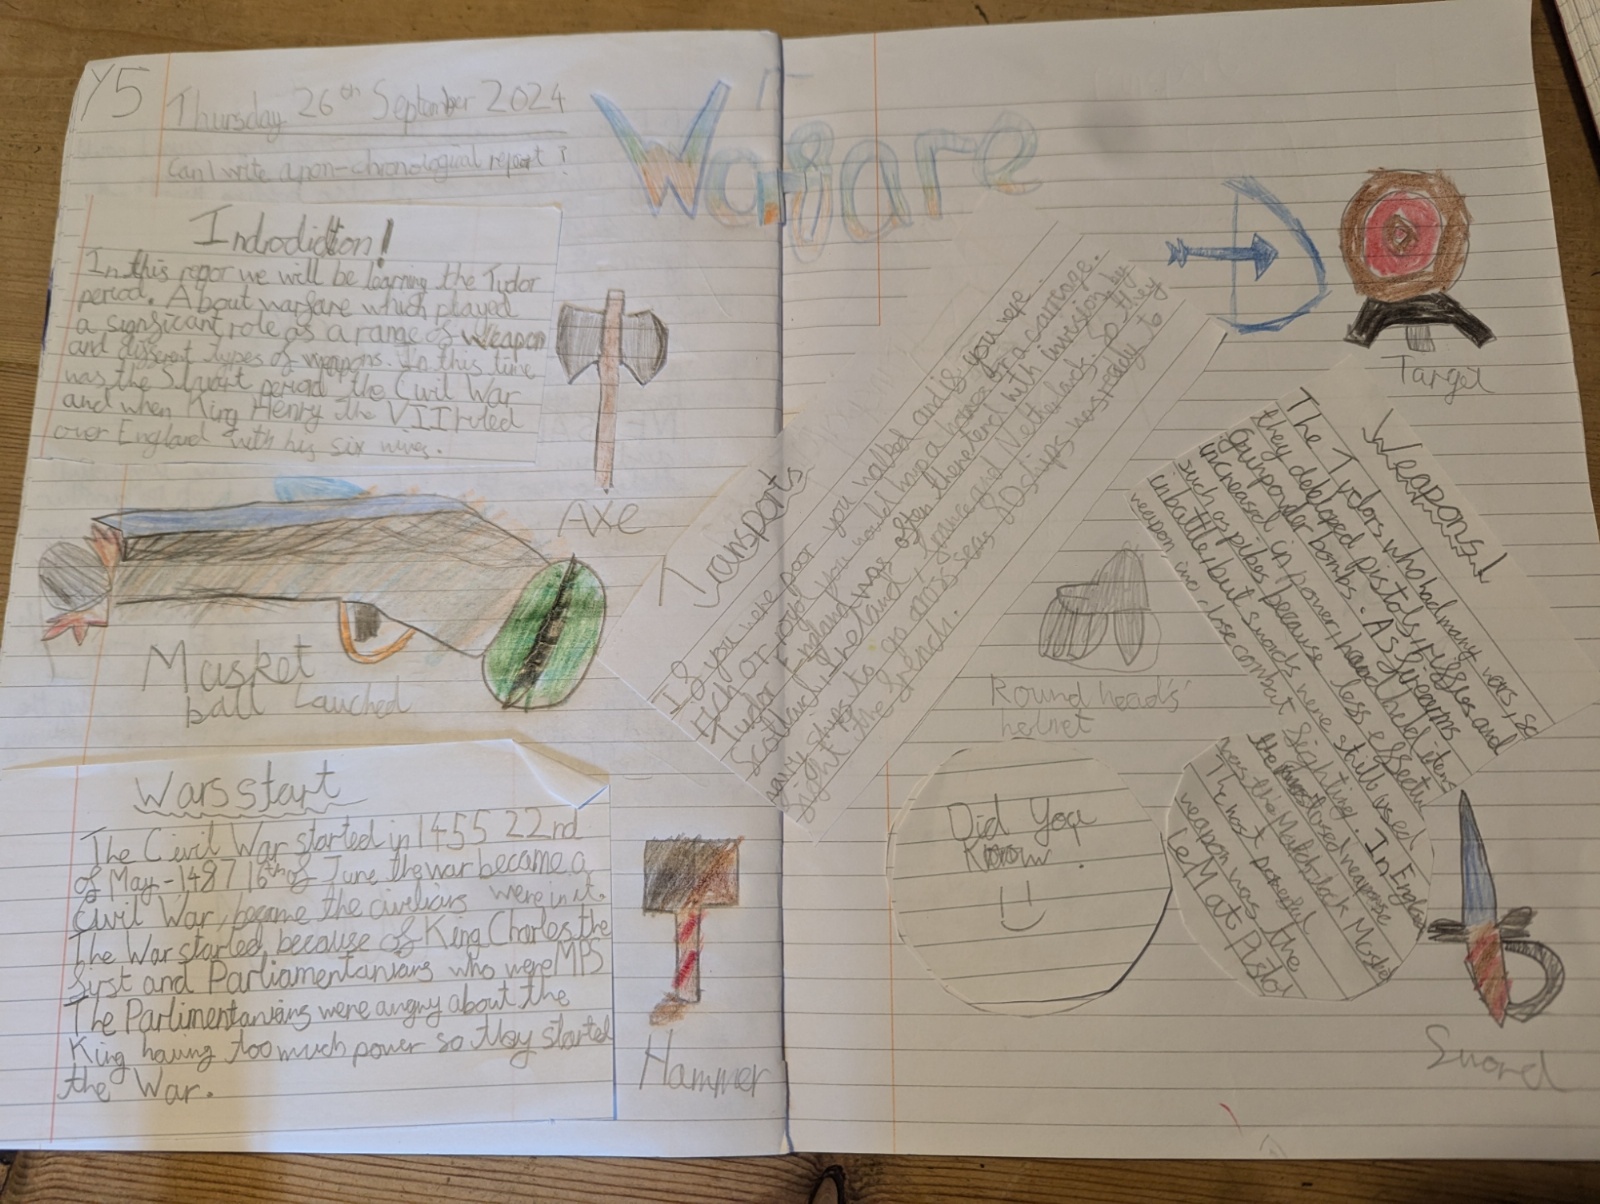 Y5
Thursday 26th September 2024
Can I write a non-chronological report?
Warfare
Indrodiction!
In this repor we will be learning the Tudor
period. About warfare which played
a significant role as a range of weapon
and different types of weapons. In this time
was the Stuart period the Civil War
and when King Henry the VII ruled
over England with his six wives.
AXe
Musket
ball Lauched
Wars start
The Civil War started in 1455 22nd
of May - 1487 16th of June the war became a
Civil War, became the civilians were in it.
The War started because of King Charles the
fyrst and Parliamentanians who were MPS
The Parlimentanians were angry about the
King having too much power so they started
the War.
Hammer
Transports
If you were poor you walked and if you were
rich or royal you would have a horse or a carriage.
Tudor England was often theretend with invesion by
Scotland, Ireland, France and Netherlands. So they
ships to go across seas 80 ships was ready to
fight the french.
Target
Weapons!
The Tudors who had many wars, so
they debeloped pistols, riffles and
Gunpowder bombs. As firearms
increased in power, hand held items
such as pikes because less effective
in battle, but swords were still used
weapon in close combat fighting. In England
the most used weapon
was the Matchlock Musket
The most powerful
weapon was the
LeMat Pistol
Round head's'
helmet
Did You
Know.
Sword